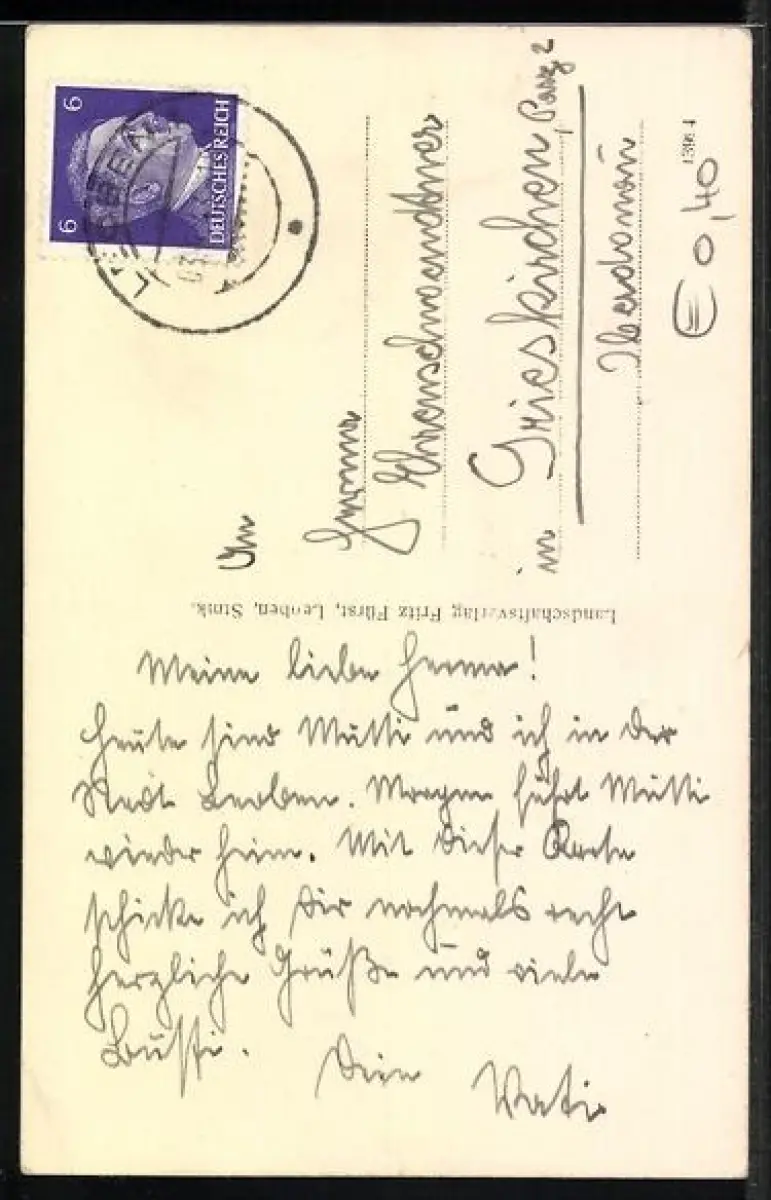 6
6
DEUTSCHES REICH
LEOBEN
An
Herma
Ehrenschwandtner
in Grieskirchen, Parz 2
Oberdonau
1396 4
€ 0,40
Landschaftsverlag Fritz Fürst, Leoben, Stmk.
Meine liebe Herma!
Heute sind Mutti und ich in der
Stadt Leoben. Morgen fährt Mutti
wieder heim. Mit dieser Karte
schicke ich Dir nochmals recht
herzliche Grüße und viele
Bussi. Dein Vati